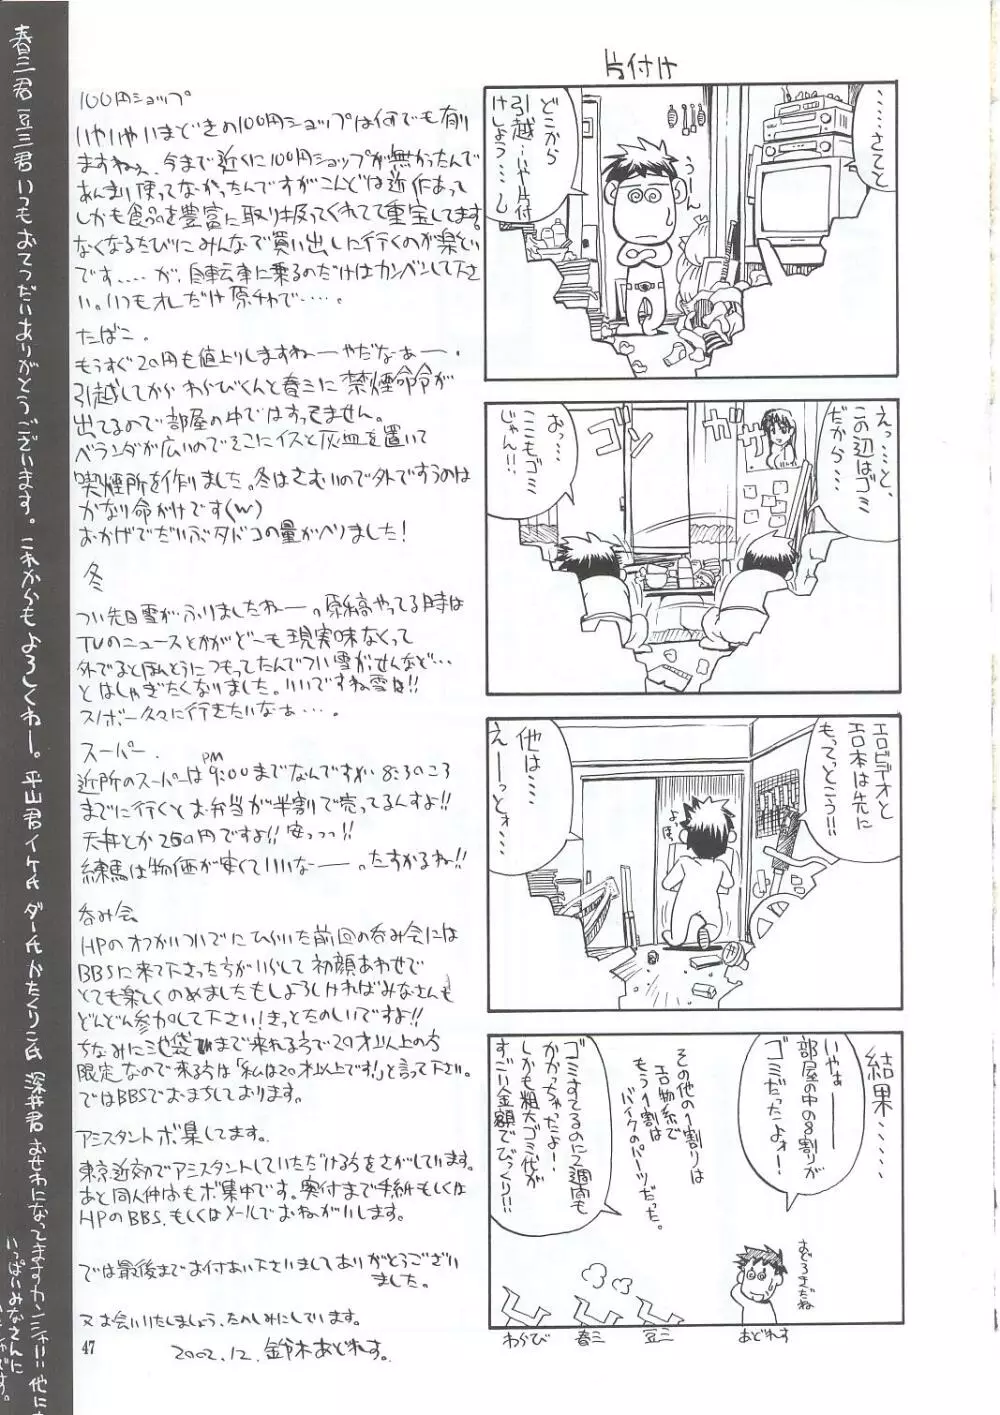 片付け
……さてと
どこから
引越…いや片付
けしよう…し
うーん
えっ……と、
この辺はゴミ
だから…
おっ…
ここもゴミ
じゃん!!
ガサ
ゴソ
エロビデオと
エロ本は先に
もってっとこう!!
他は…
えーーっとォ…
結果……
いやぁーー
部屋の中の8割りが
ゴミだったよォ!
その他の1割りは
エロ物系で
もう1割は
バイクのパーツだった。
ゴミすてるのに2週間も
かかっちゃったよー!
しかも粗大ゴミ代が
すごい金額でびっくり!!
おどろきだね
あどれす
豆三
春三
わらび
100円ショップ
いやいやいまどきの100円ショップは何でも有り
ますねぇ、今まで近くに100円ショップが無かったんで
あんまり使ってなかったんですがこんどは近所にあって
しかも食品を豊富に取り扱ってくれてて重宝してます。
なくなるたびにみんなで買い出しに行くのが楽しい
です……が、自転車に乗るのだけはカンベンして下さ
い。いつもオレだけ原チャで……。
たばこ。
もうすぐ20円も値上りしますねーーやだなぁー。
引越してから わらびくんと春三に禁煙命令が
出てるので部屋の中ではすってません。
ベランダが広いのでそこにイスと灰皿を置いて
喫煙所を作りました。冬はさむいので外ですうのは
かなり命がけです(w)
おかげでだいぶタバコの量がへりました!
冬
つい先日雪がふりましたねーー。原稿やってる時は
TVのニュースとかがどーも現実味なくって
外でるとほんとうにつもってたんでつい雪がっせんなど…
とはしゃぎたくなりました。いいですね雪は!!
スノボー久々に行きたいなぁ…。
スーパー
近所のスーパーはPM9:00までなんですが 8:30ころ
までに行くとお弁当が半割で売ってるんすよ!!
天丼とか250円ですよ!! 安っっっ!!
練馬は物価が安くていいなーー。たすかるね!!
呑み会
HPのオフがいついでにひらいた前回の呑み会には
BBSに来て下さった方がいらして初顔あわせで
とても楽しくのめましたもしよろしければみなさんも
どんどん参加して下さい!きっとたのしいですよ!!
ちなみに池袋まで来れる方で20才以上の方
限定なので来る方は「私は20才以上です!」と言って下さい。
ではBBSでおまちしております。
アシスタントボ集してます。
東京近効でアシスタントしていただける方をさがしています。
あと同人仲間もボ集中です。奥付まで手紙もしくは
HPのBBS、もしくはメールでおねがいします。
では最後までお付あい下さいましてありがとうござい
ました。
又お会いいたしましょう、たのしみにしています。
2002.12. 鈴木あどれす。
47
春三君 豆三君 いつもおてつだいありがとうございます。これからもよろしくねー。平山君イケ氏 ダー氏 かたくり氏 深井君 おせわになってますカンシャ!! 他に
いっぱいみなさんに